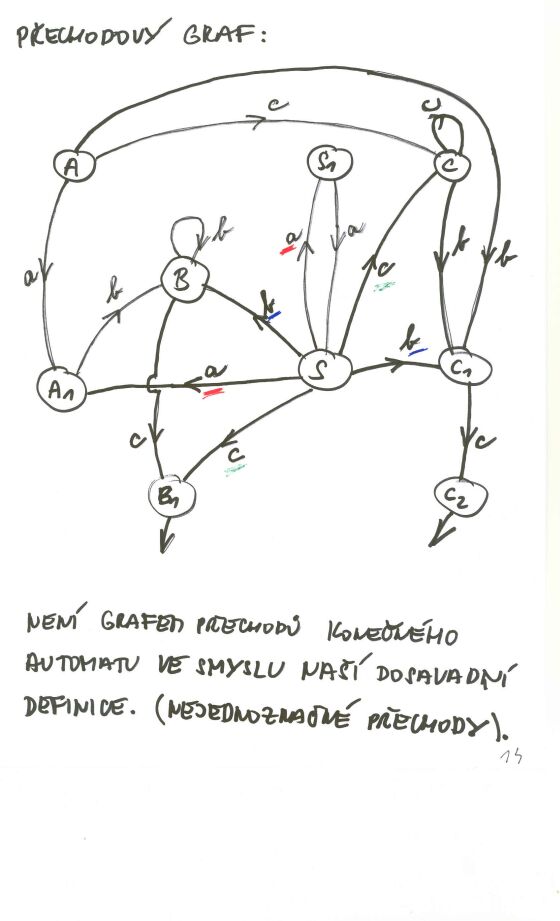 PŘECHODOVÝ GRAF:
c
A
S1
c
C
a
a
a
b
b
b
B
b
b
c
A1
a
S
b
C1
c
c
c
B1
C2
NENÍ GRAFEM PŘECHODŮ KONEČNÉHO
AUTOMATU VE SMYSLU NAŠÍ DOSAVADNÍ
DEFINICE. (NEJEDNOZNAČNÉ PŘECHODY).